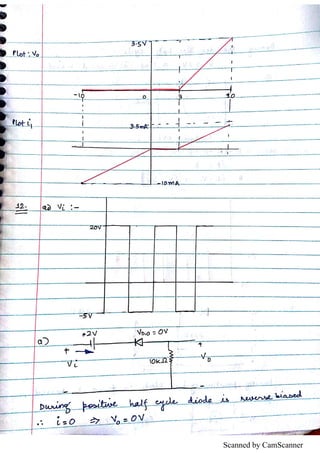 3.5V
Plot: Vo
-10 0 3 10
Plot i1
3.5mA
-10mA
12. a) Vi :-
20V
-5V
+2V VD,0 = 0V
a) + +
Vi 10kΩ Vo
- -
During positive half cycle diode is reverse biased
∴ i=0 ⇒ Vo = 0V
Scanned by CamScanner